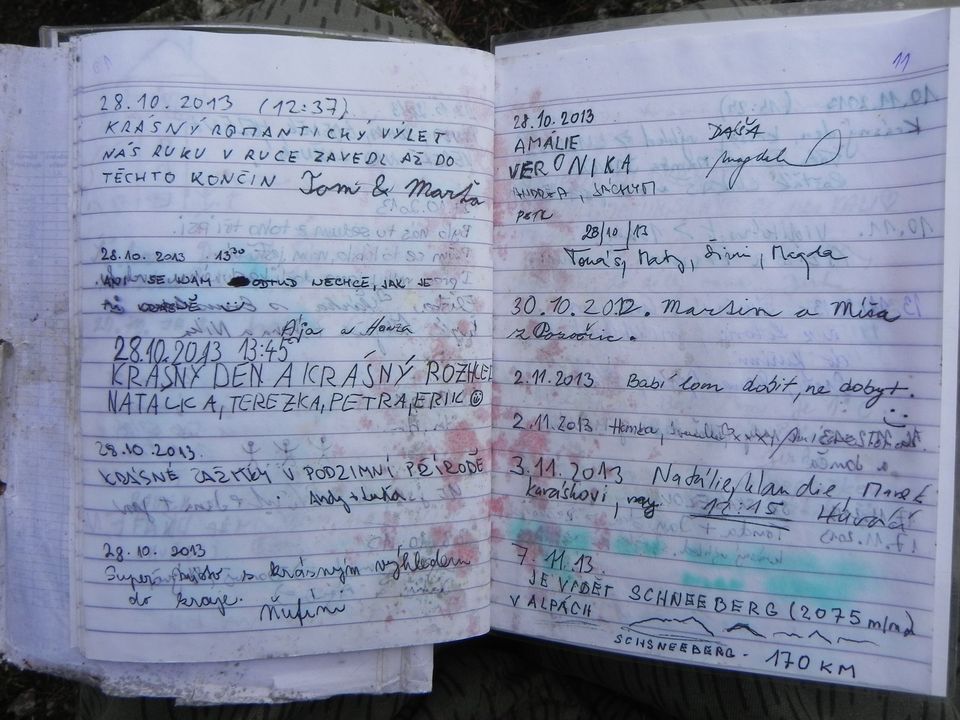 10
28.10.2013 (12:37)
KRÁSNÝ ROMANTICKÝ VÝLET
NÁS RUKU V RUCE ZAVEDL AŽ DO
TĚCHTO KONČIN Tom & Marťa
28.10.2013 13³⁰
ANI SE NÁM ODTUD NECHCE, JAK JE
Ája a Honza
28.10.2013 13:45
KRÁSNÝ DEN A KRÁSNÝ ROZHLED
NATÁLKA, TEREZKA, PETRA, ERIK ☺
28.10.2013.
KRÁSNÉ ZÁŽITKY V PODZIMNÍ PŘÍRODĚ
Andy + Luka
28.10.2013
Super místo s krásným výhledem
do kraje.
Ňufíni
11
28.10.2013
AMÁLIE DÁŠA
VERONIKA Magdal
ANDREA, JÁCHYM
PETR
28/10/13
Tomáš, Maty, Jimi, Magda
30.10.2012. Martin a Míša
z Pozořic.
2.11.2013 Babí lom dobit, ne dobyt.
2.11.2013 Honza,
3.11.2013 Natálie, Klaudie, Marek
Karáskovi, 12:15
7.11.13.
JE VIDĚT SCHNEEBERG (2075 m/nm)
V ALPÁCH
SCHSNEEBERG - 170 KM